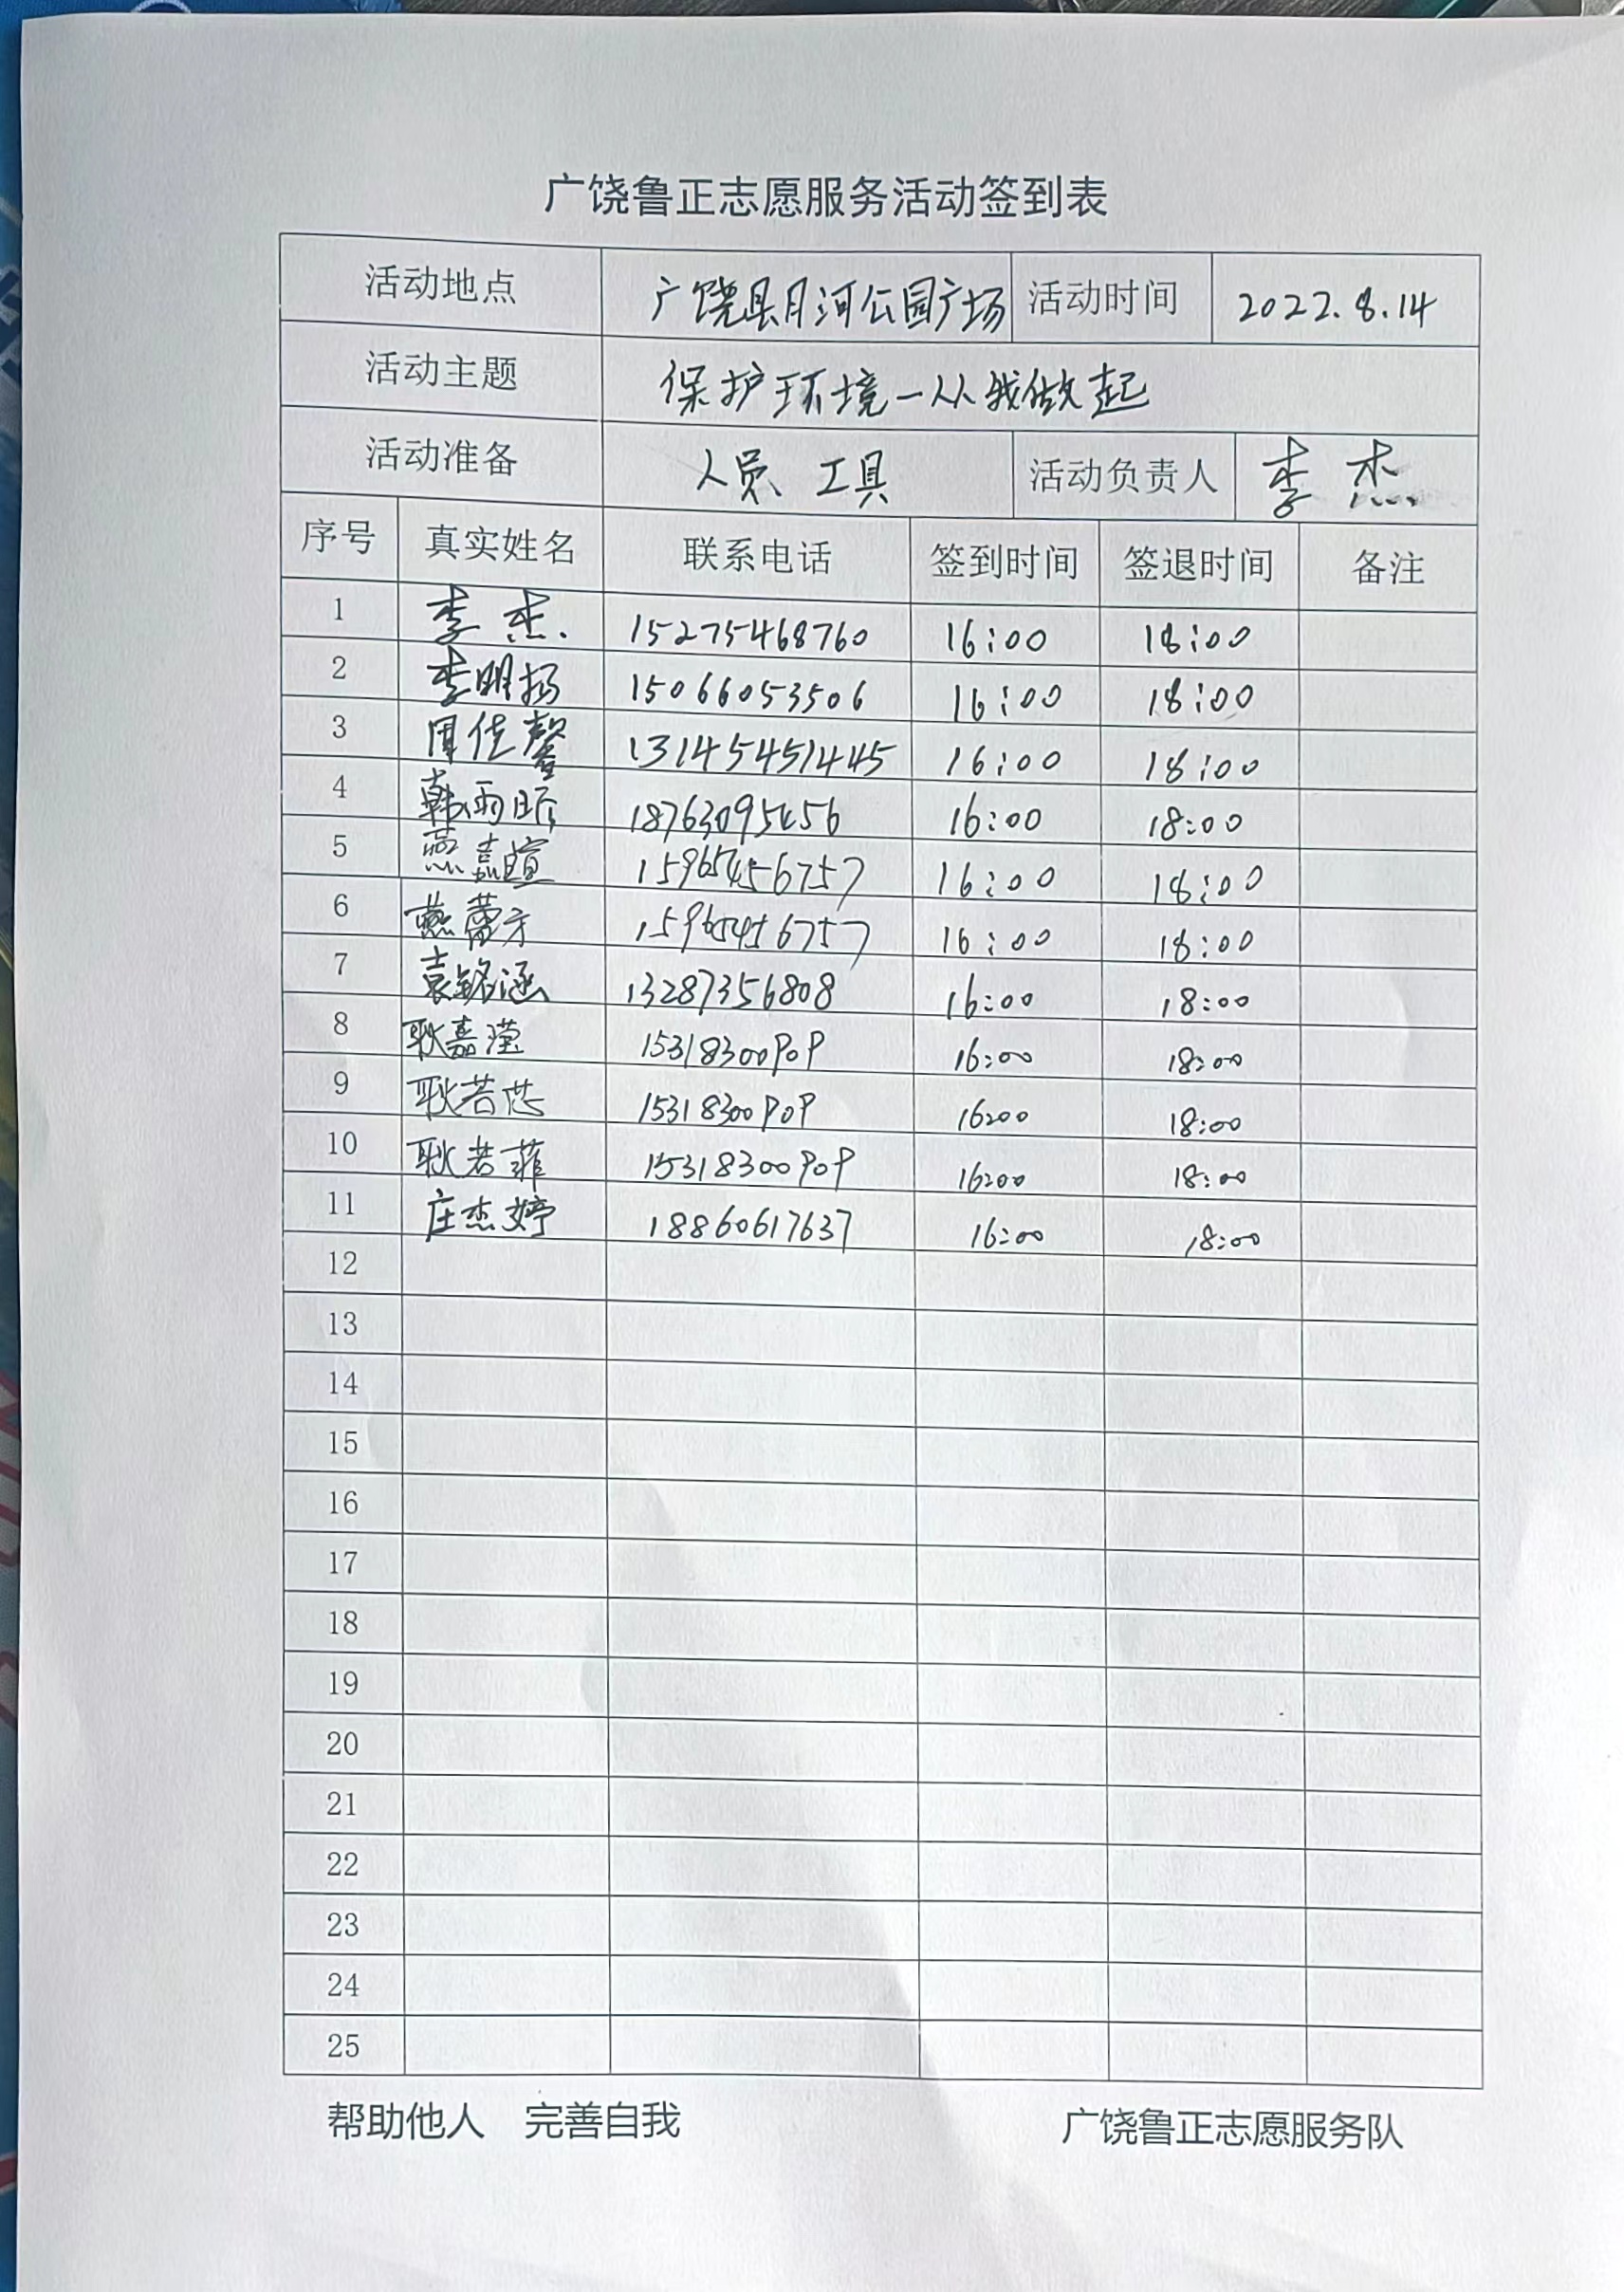 广饶鲁正志愿服务活动签到表
活动地点 广饶县月河公园广场 活动时间 2022.8.14
活动主题 保护环境一从我做起
活动准备 人员、工具 活动负责人 李杰
序号 真实姓名 联系电话 签到时间 签退时间 备注
1 李杰 15275468760 16:00 18:00
2 李明扬 15066053506 16:00 18:00
3 周佳馨 13145451445 16:00 18:00
4 韩雨昕 18763095456 16:00 18:00
5 燕嘉暄 15965456757 16:00 18:00
6 燕蕾芳 15965456757 16:00 18:00
7 袁铭涵 13287356808 16:00 18:00
8 耿嘉滢 15318300909 16:00 18:00
9 耿若芯 15318300909 16:00 18:00
10 耿若菲 15318300909 16:00 18:00
11 庄杰婷 18860617637 16:00 18:00
12
13
14
15
16
17
18
19
20
21
22
23
24
25
帮助他人 完善自我 广饶鲁正志愿服务队